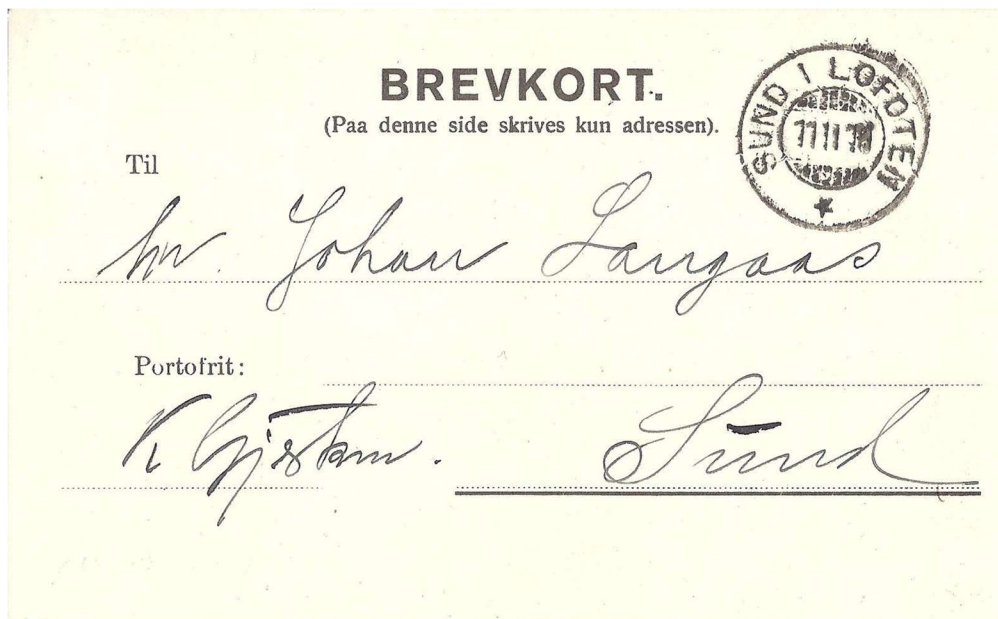 BREVKORT.
(Paa denne side skrives kun adressen).
SUND I LOFOTEN
11 II
Til
hr. Johan Langaas
Portofrit:
K
Sund